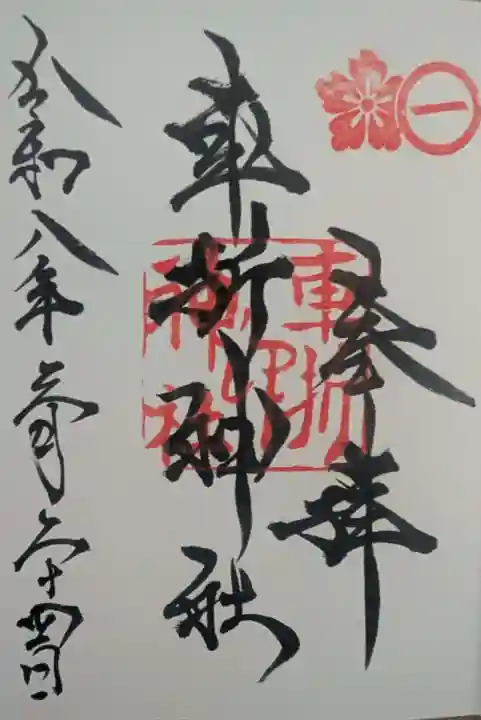 一
奉拝
車折神社
車折
神社
令和八年 月 十四日